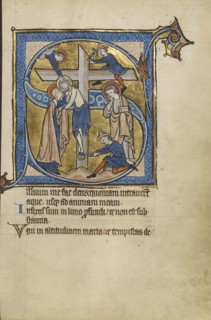 Saluum me fac deus quoniam intrauerunt
aque usq; ad animam meam.
Infixus sum in limo pfundi et non est sub
stantia.
Veni in altitudinem maris et tempestas de